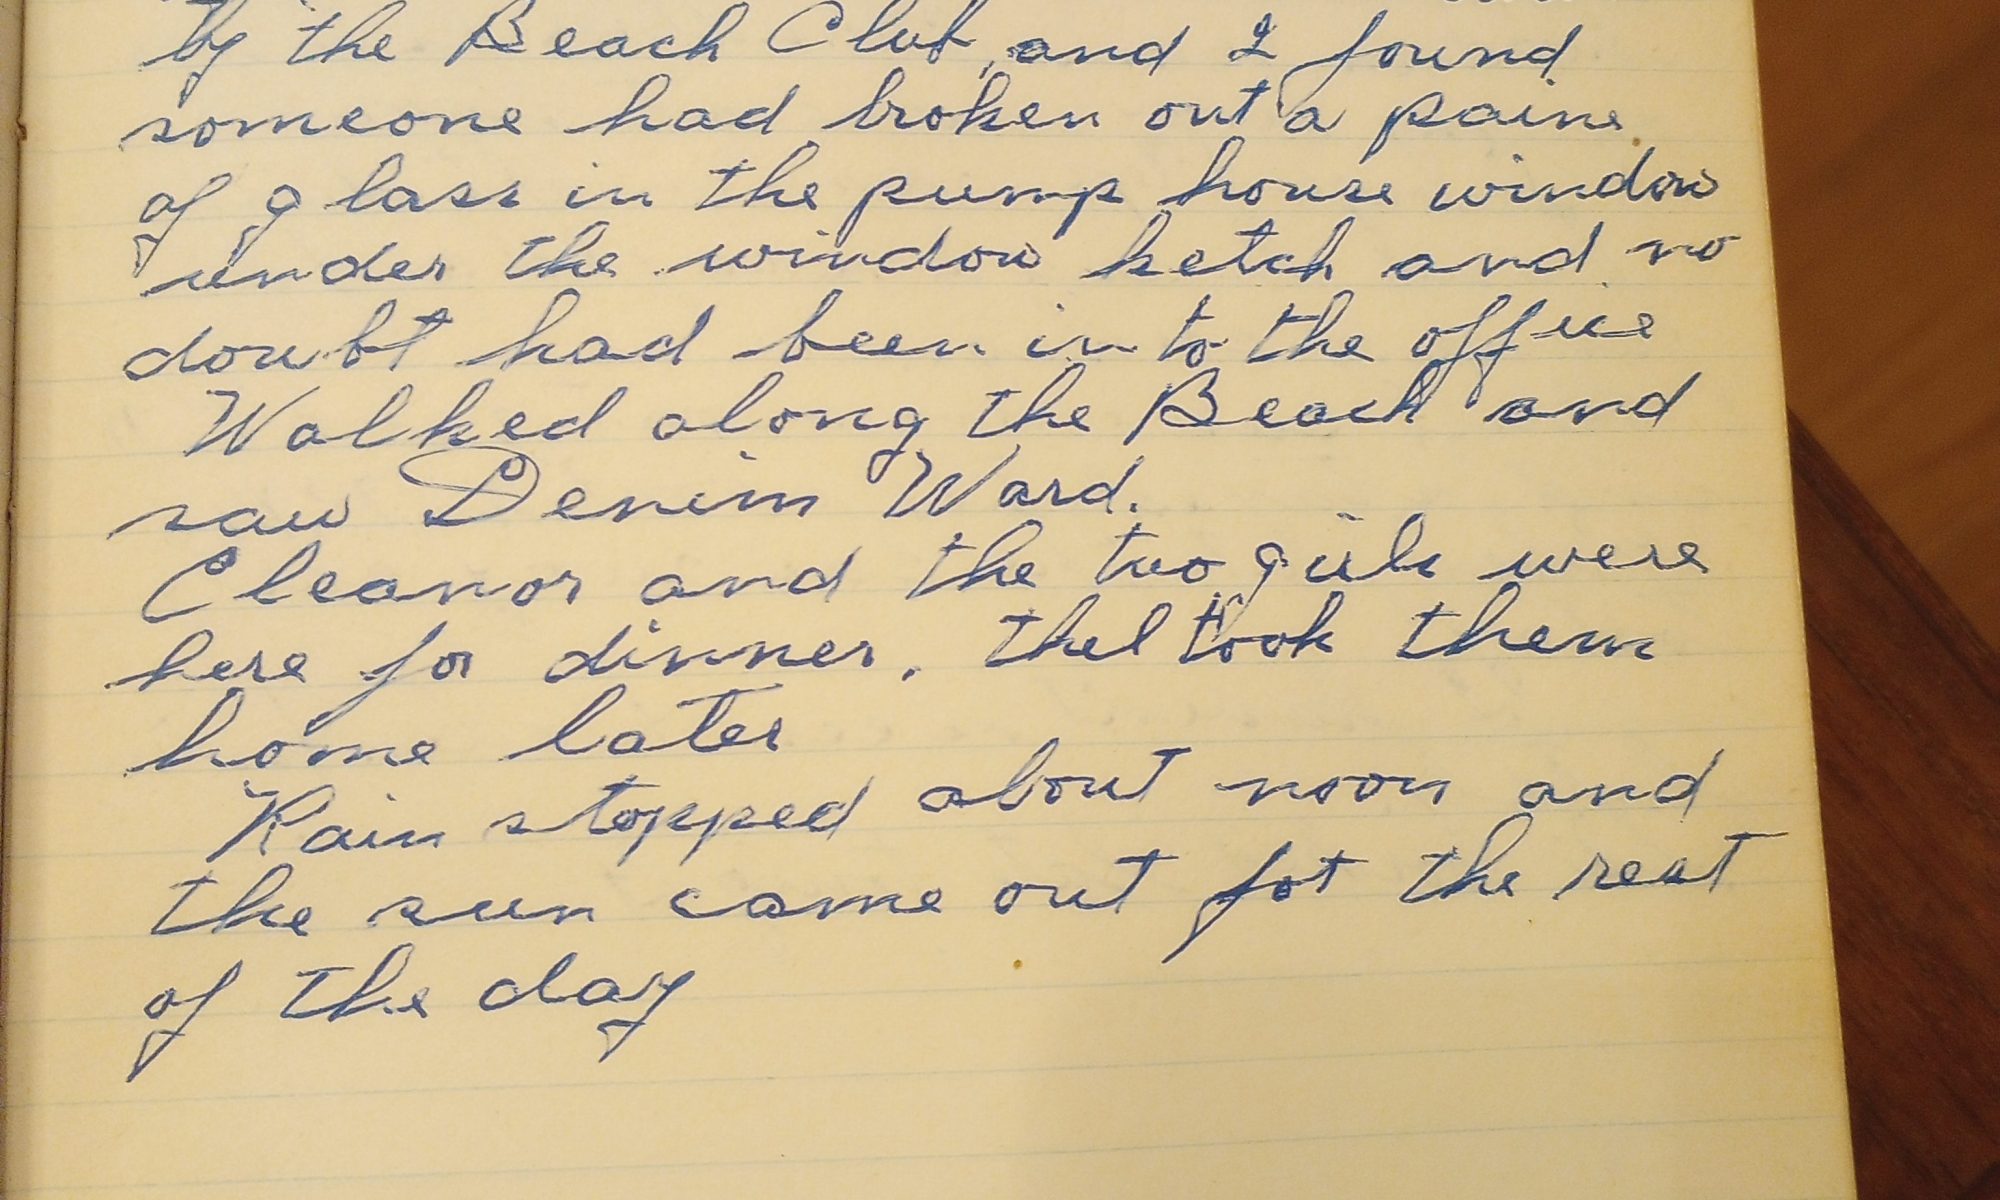 by the Beach Club, and I found
someone had broken out a paine
of glass in the pump house window
under the window ketch and no
doubt had been in to the office
Walked along the Beach and
saw Denim Ward.
Eleanor and the two girls were
here for dinner. thel took them
home later
Rain stopped about noon and
the sun came out fot the rest
of the day